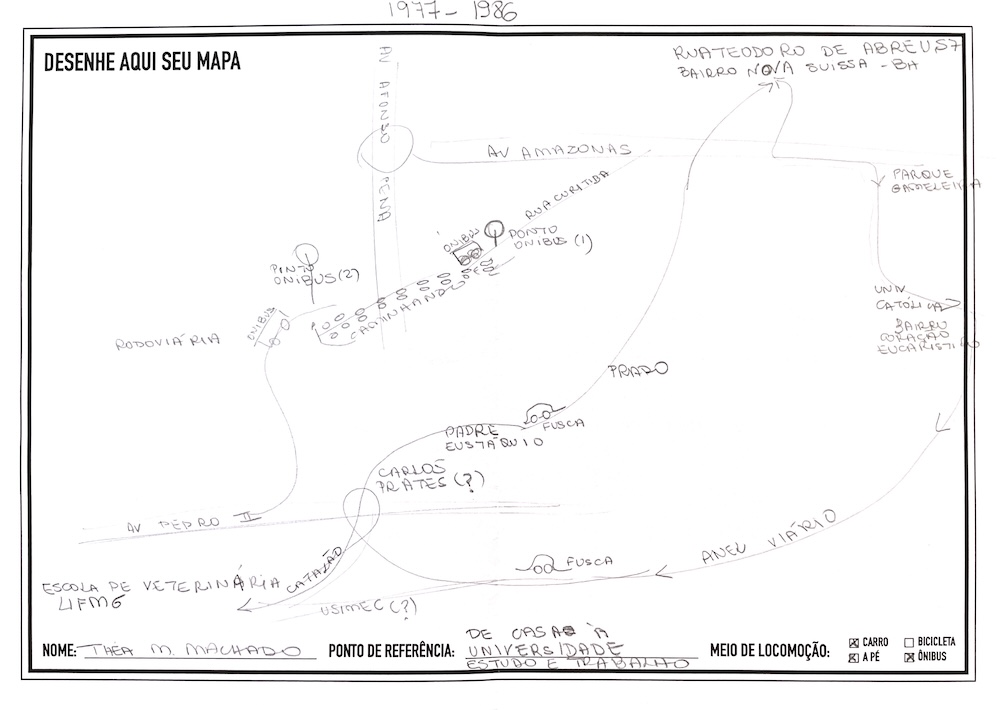 1977 - 1986
DESENHE AQUI SEU MAPA
RUA TEODORO DE ABREU 57
BAIRRO NOVA SUISSA - BH
AV AFONSO PENA
AV AMAZONAS
PARQUE
GAMELEIRA
RUA CURITIBA
ÔNIBUS
PONTO
ONIBUS (1)
PONTO
ONIBUS (2)
CAMINHANDO
UNIV
CATÓLICA
BAIRRO
CORAÇÃO
EUCARISTICO
RODOVIÁRIA
ONIBUS
PRADO
FUSCA
PADRE
EUSTÁQUIO
CARLOS
PRATES (?)
AV PEDRO II
ANEL VIÁRIO
FUSCA
CATALÃO
ESCOLA DE VETERINÁRIA
UFMG
USIMEC (?)
NOME: THÉA M. MACHADO
PONTO DE REFERÊNCIA: DE CASA À
UNIVERSIDADE
ESTUDO E TRABALHO
MEIO DE LOCOMOÇÃO:
CARRO
BICICLETA
A PÉ
ÔNIBUS